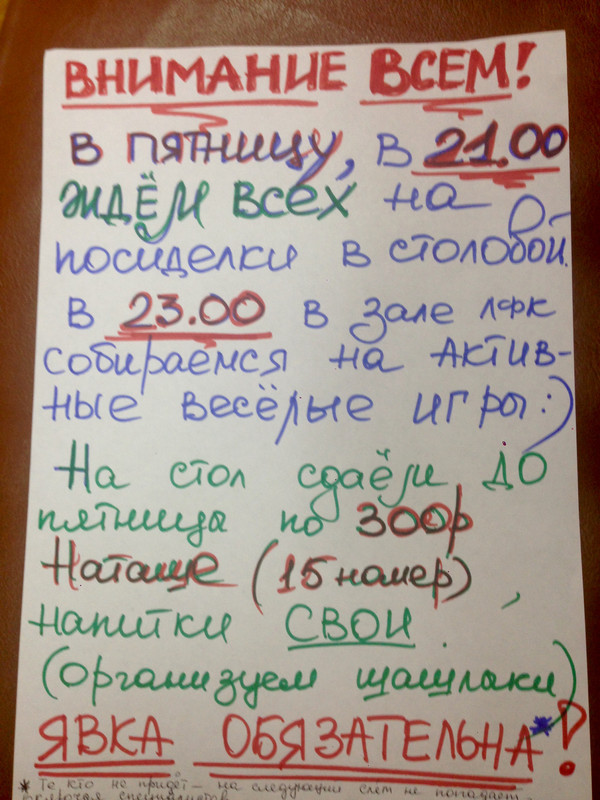 ВНИМАНИЕ ВСЕМ!
В ПЯТНИЦУ, В 21.00
ЖДЁМ ВСЕХ на
посиделки в столовой.
В 23.00 в зале ЛФК
собираемся на АКТИВ-
ные весёлые игры:)
На стол сдаём ДО
пятницы по 300р
Наташе (15 номер),
напитки СВОИ.
(Организуем шашлыки)
ЯВКА ОБЯЗАТЕЛЬНА*!
* Те кто не придёт - на следующий слет не попадает
включая специалистов